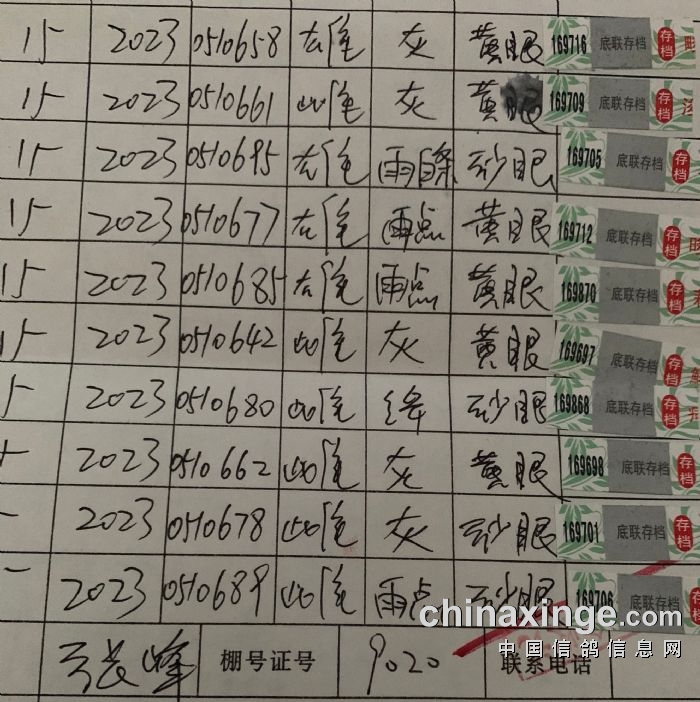 15 2023 0510658 雄 灰 黄眼 169716 底联存档 存档
15 2023 0510661 雌 灰 黄眼 169709 底联存档 存档
15 2023 0510695 雄 雨白条 砂眼 169705 底联存档 存档
15 2023 0510677 雄 雨点 黄眼 169712 底联存档 存档
15 2023 0510685 雄 雨点 黄眼 169870 底联存档 存档
15 2023 0510642 雌 灰 黄眼 169697 底联存档 存档
5 2023 0510680 雌 绛 砂眼 169868 底联存档 存档
2023 0510662 雌 灰 黄眼 169698 底联存档 存档
2023 0510678 雌 灰 砂眼 169701 底联存档 存档
2023 0510689 雌 雨点 砂眼 169706 底联存档 存档
chinaxinge.com
中国信鸽信息网
棚号证号 9020 联系电话